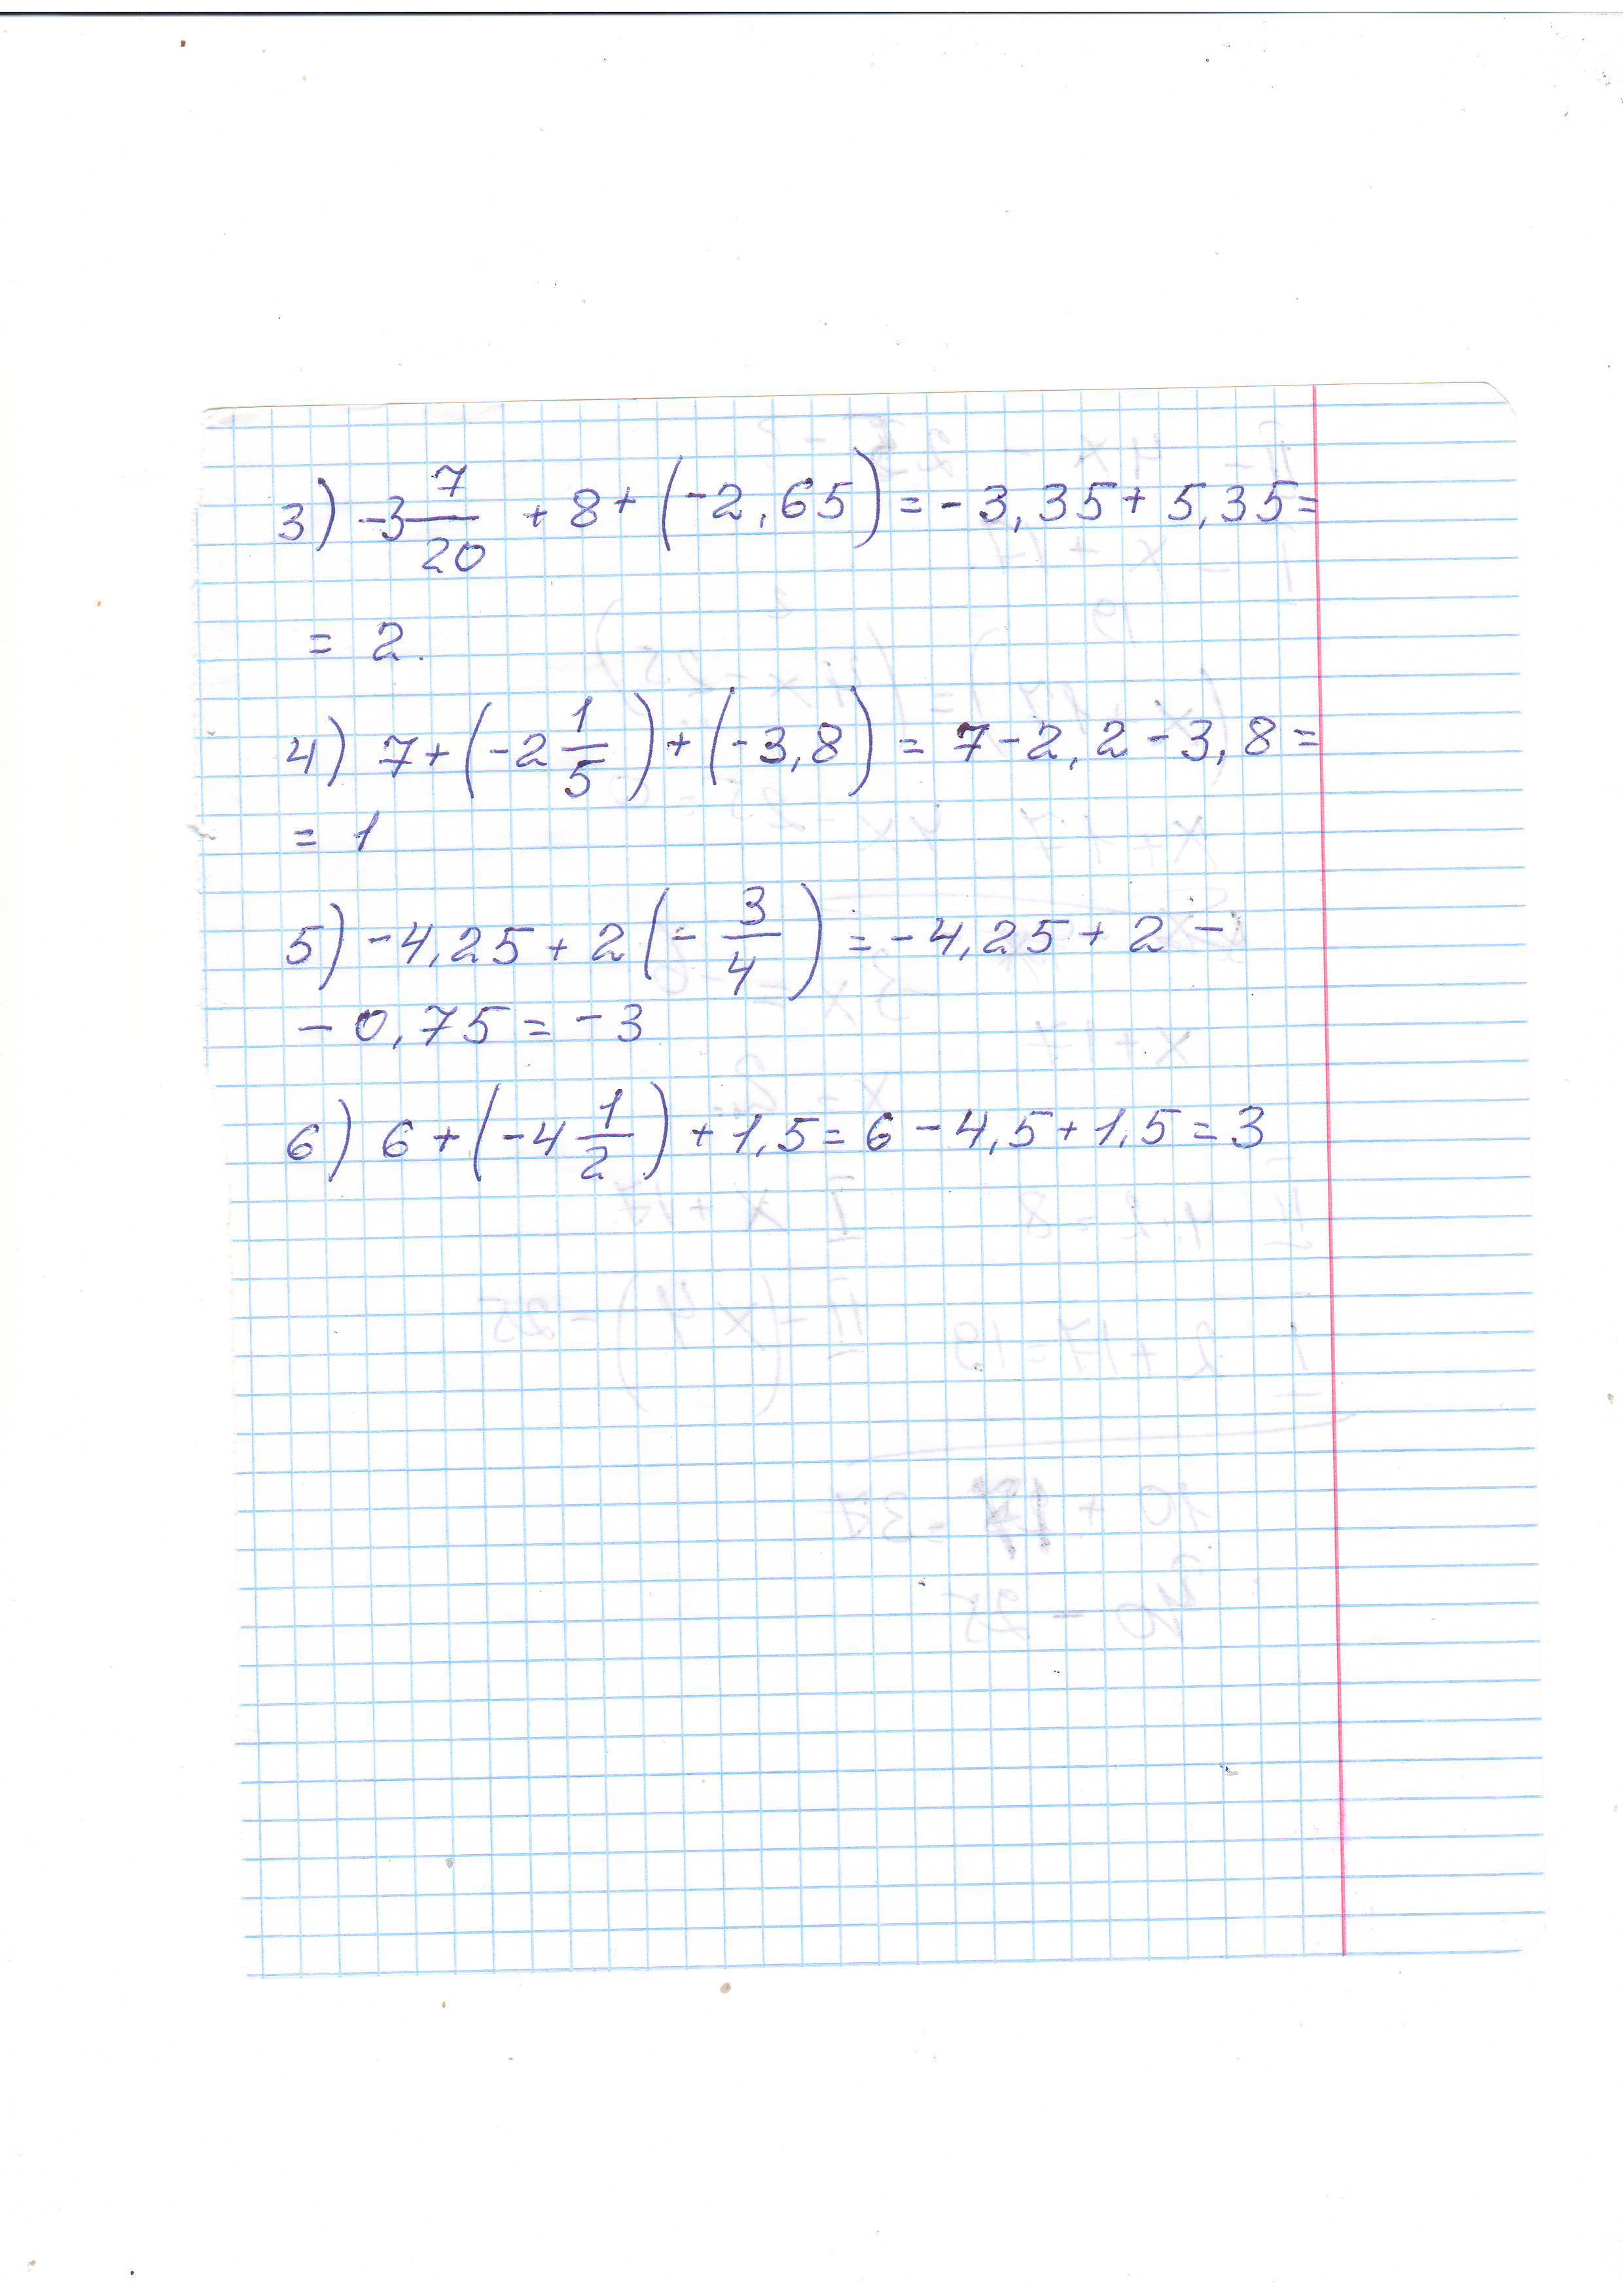 3) -3 7/20 + 8 + (-2,65) = -3,35 + 5,35 =
= 2.
4) 7 + (-2 1/5) + (-3,8) = 7 - 2,2 - 3,8 =
= 1
5) -4,25 + 2 (- 3/4) = -4,25 + 2 -
- 0,75 = -3
6) 6 + (-4 1/2) + 1,5 = 6 - 4,5 + 1,5 = 3